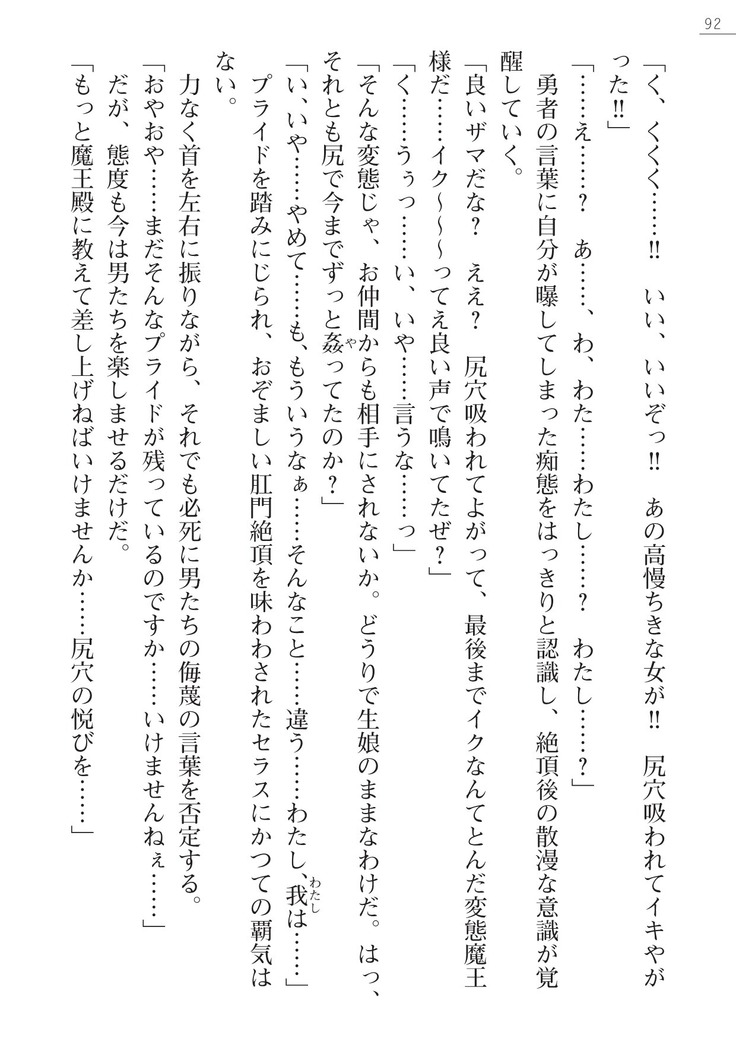 92
「く、くくく……!!　いい、いいぞっ!!　あの高慢ちきな女が!!　尻穴吸われてイキやが
った!!」
「……え……？　あ……、わ、わた……わたし……？　わたし……？」
　勇者の言葉に自分が曝してしまった痴態をはっきりと認識し、絶頂後の散漫な意識が覚
醒していく。
「良いザマだな？　ええ？　尻穴吸われてよがって、最後までイクなんてとんだ変態魔王
様だ……イク～～～ってえ良い声で鳴いてたぜ？」
「く……うぅっ……い、いや……言うな……っ」
「そんな変態じゃ、お仲間からも相手にされないか。どうりで生娘のままなわけだ。はっ、
それとも尻で今までずっと姦やってたのか？」
「い、いや……やめて……も、もういうなぁ……そんなこと……違う……わたし、我わたしは……」
　プライドを踏みにじられ、おぞましい肛門絶頂を味わわされたセラスにかつての覇気は
ない。
　力なく首を左右に振りながら、それでも必死に男たちの侮蔑の言葉を否定する。
「おやおや……まだそんなプライドが残っているのですか……いけませんねぇ……」
　だが、態度も今は男たちを楽しませるだけだ。
「もっと魔王殿に教えて差し上げねばいけませんか……尻穴の悦びを……」